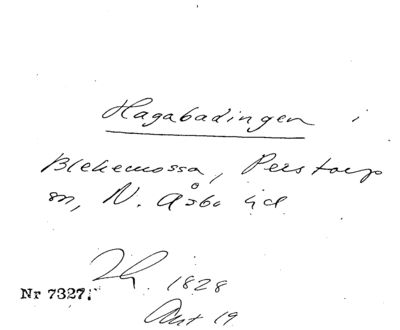 Hagabadingen i
Blekemossa, Perstorp
sn, N. Åsbo hd
1828
Nr 7327.
Ant 19